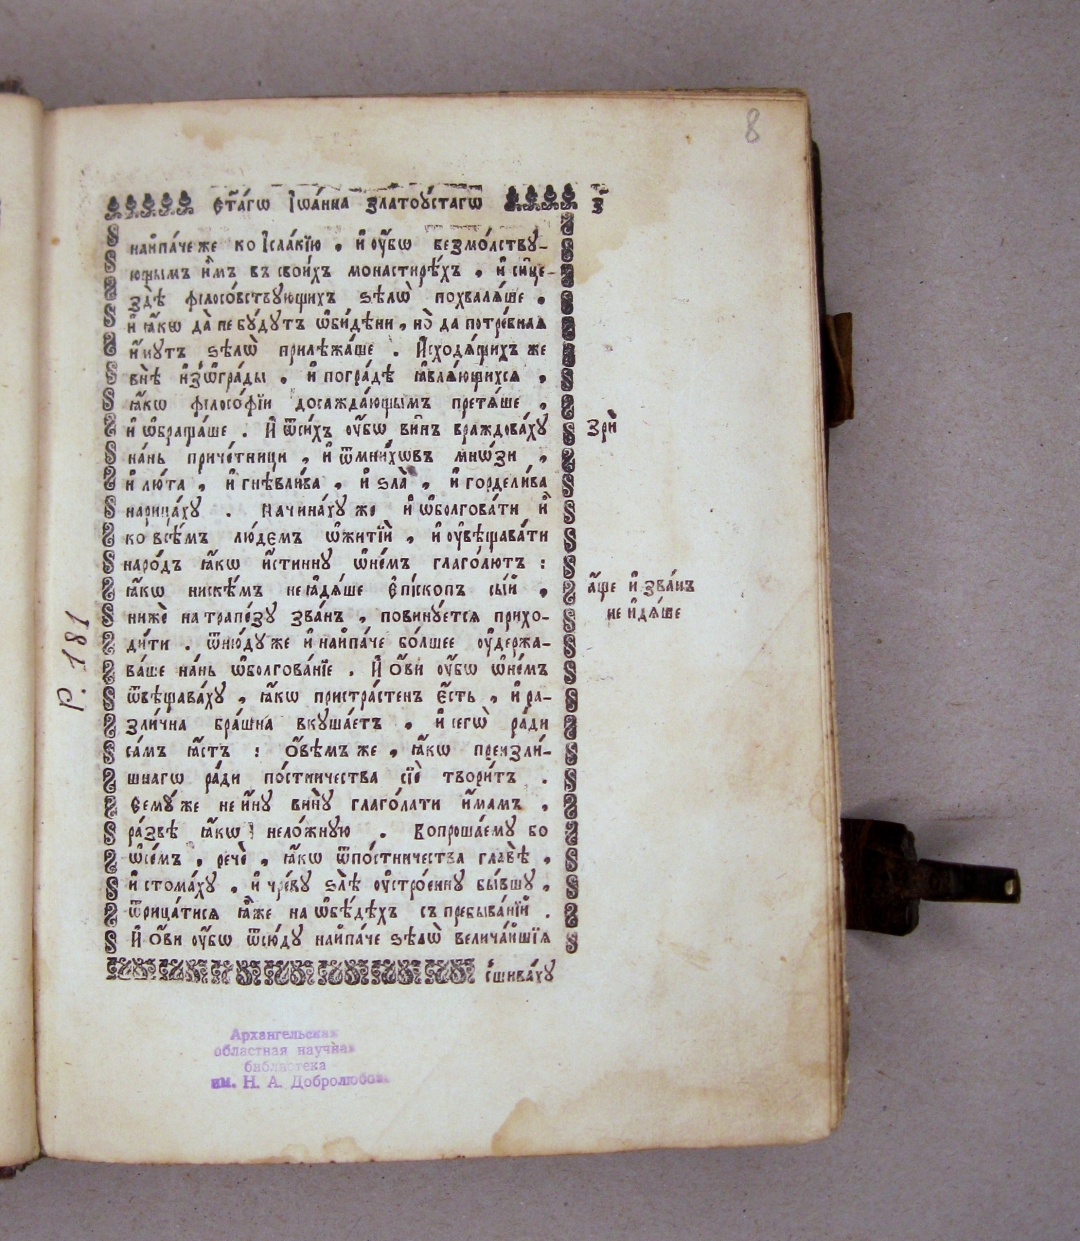 8
Ст҃а́гѡ Їѡа́нна златоу́стагѡ
з҃
наипа́че же ко Ісаа́кїю , и҆ оу҆́бѡ безмо́лствꙋ-
ющымъ и҆̀мъ въ свои́хъ монастирѣ́хъ , и҆ си́це-
здѣ̀ філосо́вствꙋющихъ ѕѣлѡ̀ похвалѧ́ше ,
и҆ ꙗ҆́кѡ да̀ не бꙋ́дꙋтъ ѡ҆би́дѣни , но̀ да потре́бная
и҆́мꙋтъ ѕѣлѡ̀ прилѣжа́ше . И҆сходѧ́щихъ же
внѣ̀ и҆зѡ҆гра́ды , и҆ по гра́дѣ ꙗ҆влѧ́ющихсѧ ,
ꙗ҆́кѡ філосо́фїи досажда́ющымъ претѧ́ше ,
и҆ ѡ҆браща́ше . И҆ ѿси́хъ оу҆́бѡ ви́нъ враждова́хꙋ
на́нь приче́тницы , и҆ ѿмни́хѡвъ мнѡ́зи ,
и҆ лю́та , и҆ гнѣвли́ва , и҆ ѕла̀ , и҆ горделива
нарица́хꙋ . Начина́хꙋ же и҆ ѡ҆болгова́ти и҆̀
ко всѣ́мъ лю́демъ ѡ҆житїѝ , и҆ оу҆вѣщава́ти
наро́дъ ꙗ҆́кѡ и҆́стиннꙋ ѡ҆не́мъ глаго́лютъ :
ꙗ҆́кѡ нискѣ́мъ не ꙗ҆дѧ́ше є҆пі́скопъ сы́й ,
нижѐ на трапе́зꙋ зва́нъ , повинꙋ́ется прихо-
ди́ти . ѿню́дꙋже и҆ наипа́че бо́лшее оу҆держа-
ва́ше на́нь ѡ҆болгова́нїе . И҆ ѻ҆́ви оу҆́бѡ ѡ҆не́мъ
ѿвѣщава́хꙋ , ꙗ҆́кѡ пристра́стенъ є҆́сть , и҆ ра-
зли́чна бра́шна вкꙋша́етъ , и҆ сегѡ̀ ра́ди
са́мъ ꙗ҆́стъ : ѻ҆́вѣмъ же , ꙗ҆́кѡ преизли́-
шнагѡ ра́ди по́стничества сїѐ твори́тъ .
Семꙋ́ же не и҆́нꙋ винꙋ̀ глаго́лати и҆́мамъ ,
ра́звѣ ꙗ҆́кѡ нело́жнꙋю . Вопроша́емꙋ бо
ѡ҆се́мъ , речѐ , ꙗ҆́кѡ ѿпо́стничества главѣ̀ ,
и҆ стома́хꙋ , и҆ чре́вꙋ ѕлѣ̀ оу҆стро́еннꙋ бы́вшꙋ ,
ѿрица́тисѧ ꙗ҆́же на ѡ҆бѣ́дѣхъ съ пребыва́нїи .
И҆ ѻ҆́ви оу҆́бѡ ѿсю́дꙋ наипа́че ѕѣлѡ̀ велича́йшїѧ
сшива́хꙋ
Зрѝ
а҆́ще и҆ зва́нъ
не и҆дѧ́ше
Р. 181
Архангельская
областная научная
библиотека
им. Н. А. Добролюбова